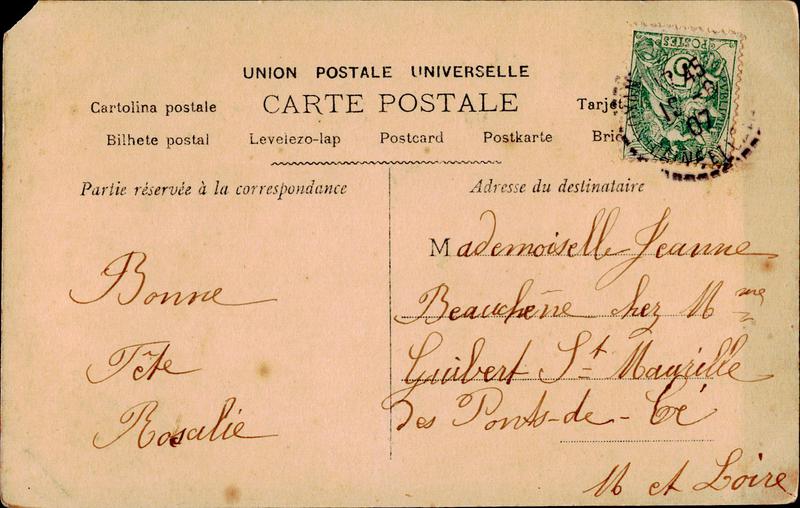 UNION POSTALE UNIVERSELLE
CARTE POSTALE
Cartolina postale
Tarjet
Bilhete postal Levelezo-lap Postcard Postkarte Bric
POSTES
15
07
Partie réservée à la correspondance
Adresse du destinataire
Bonne
Fête
Rosalie
Mademoiselle Jeanne
Beauchêne chez Mme
Guibert St Maurille
des Ponts-de-Cé
M et Loire